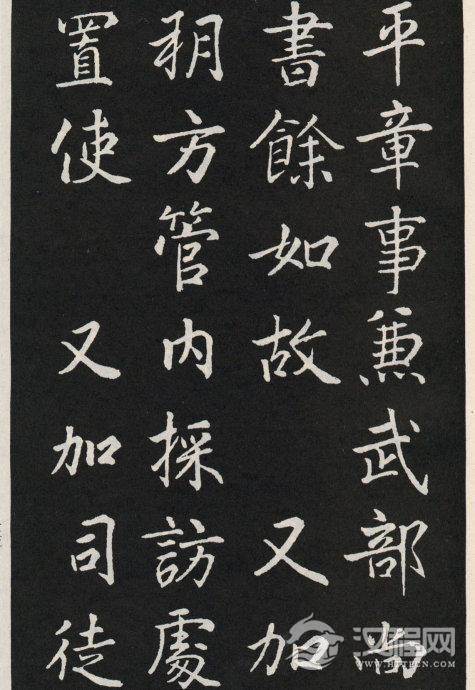 平章事兼武部尚
書餘如故 又加
朔方管内採訪處
置使 又加司徒
汉程网
HTTPCN.COM